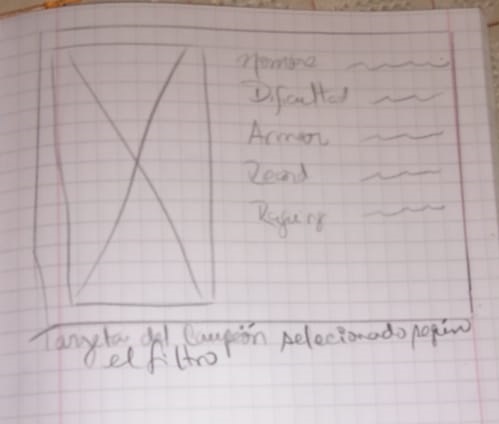 Nombre
Dificultad
Armor
Tarjeta del Campeón selecionado según
el filtro